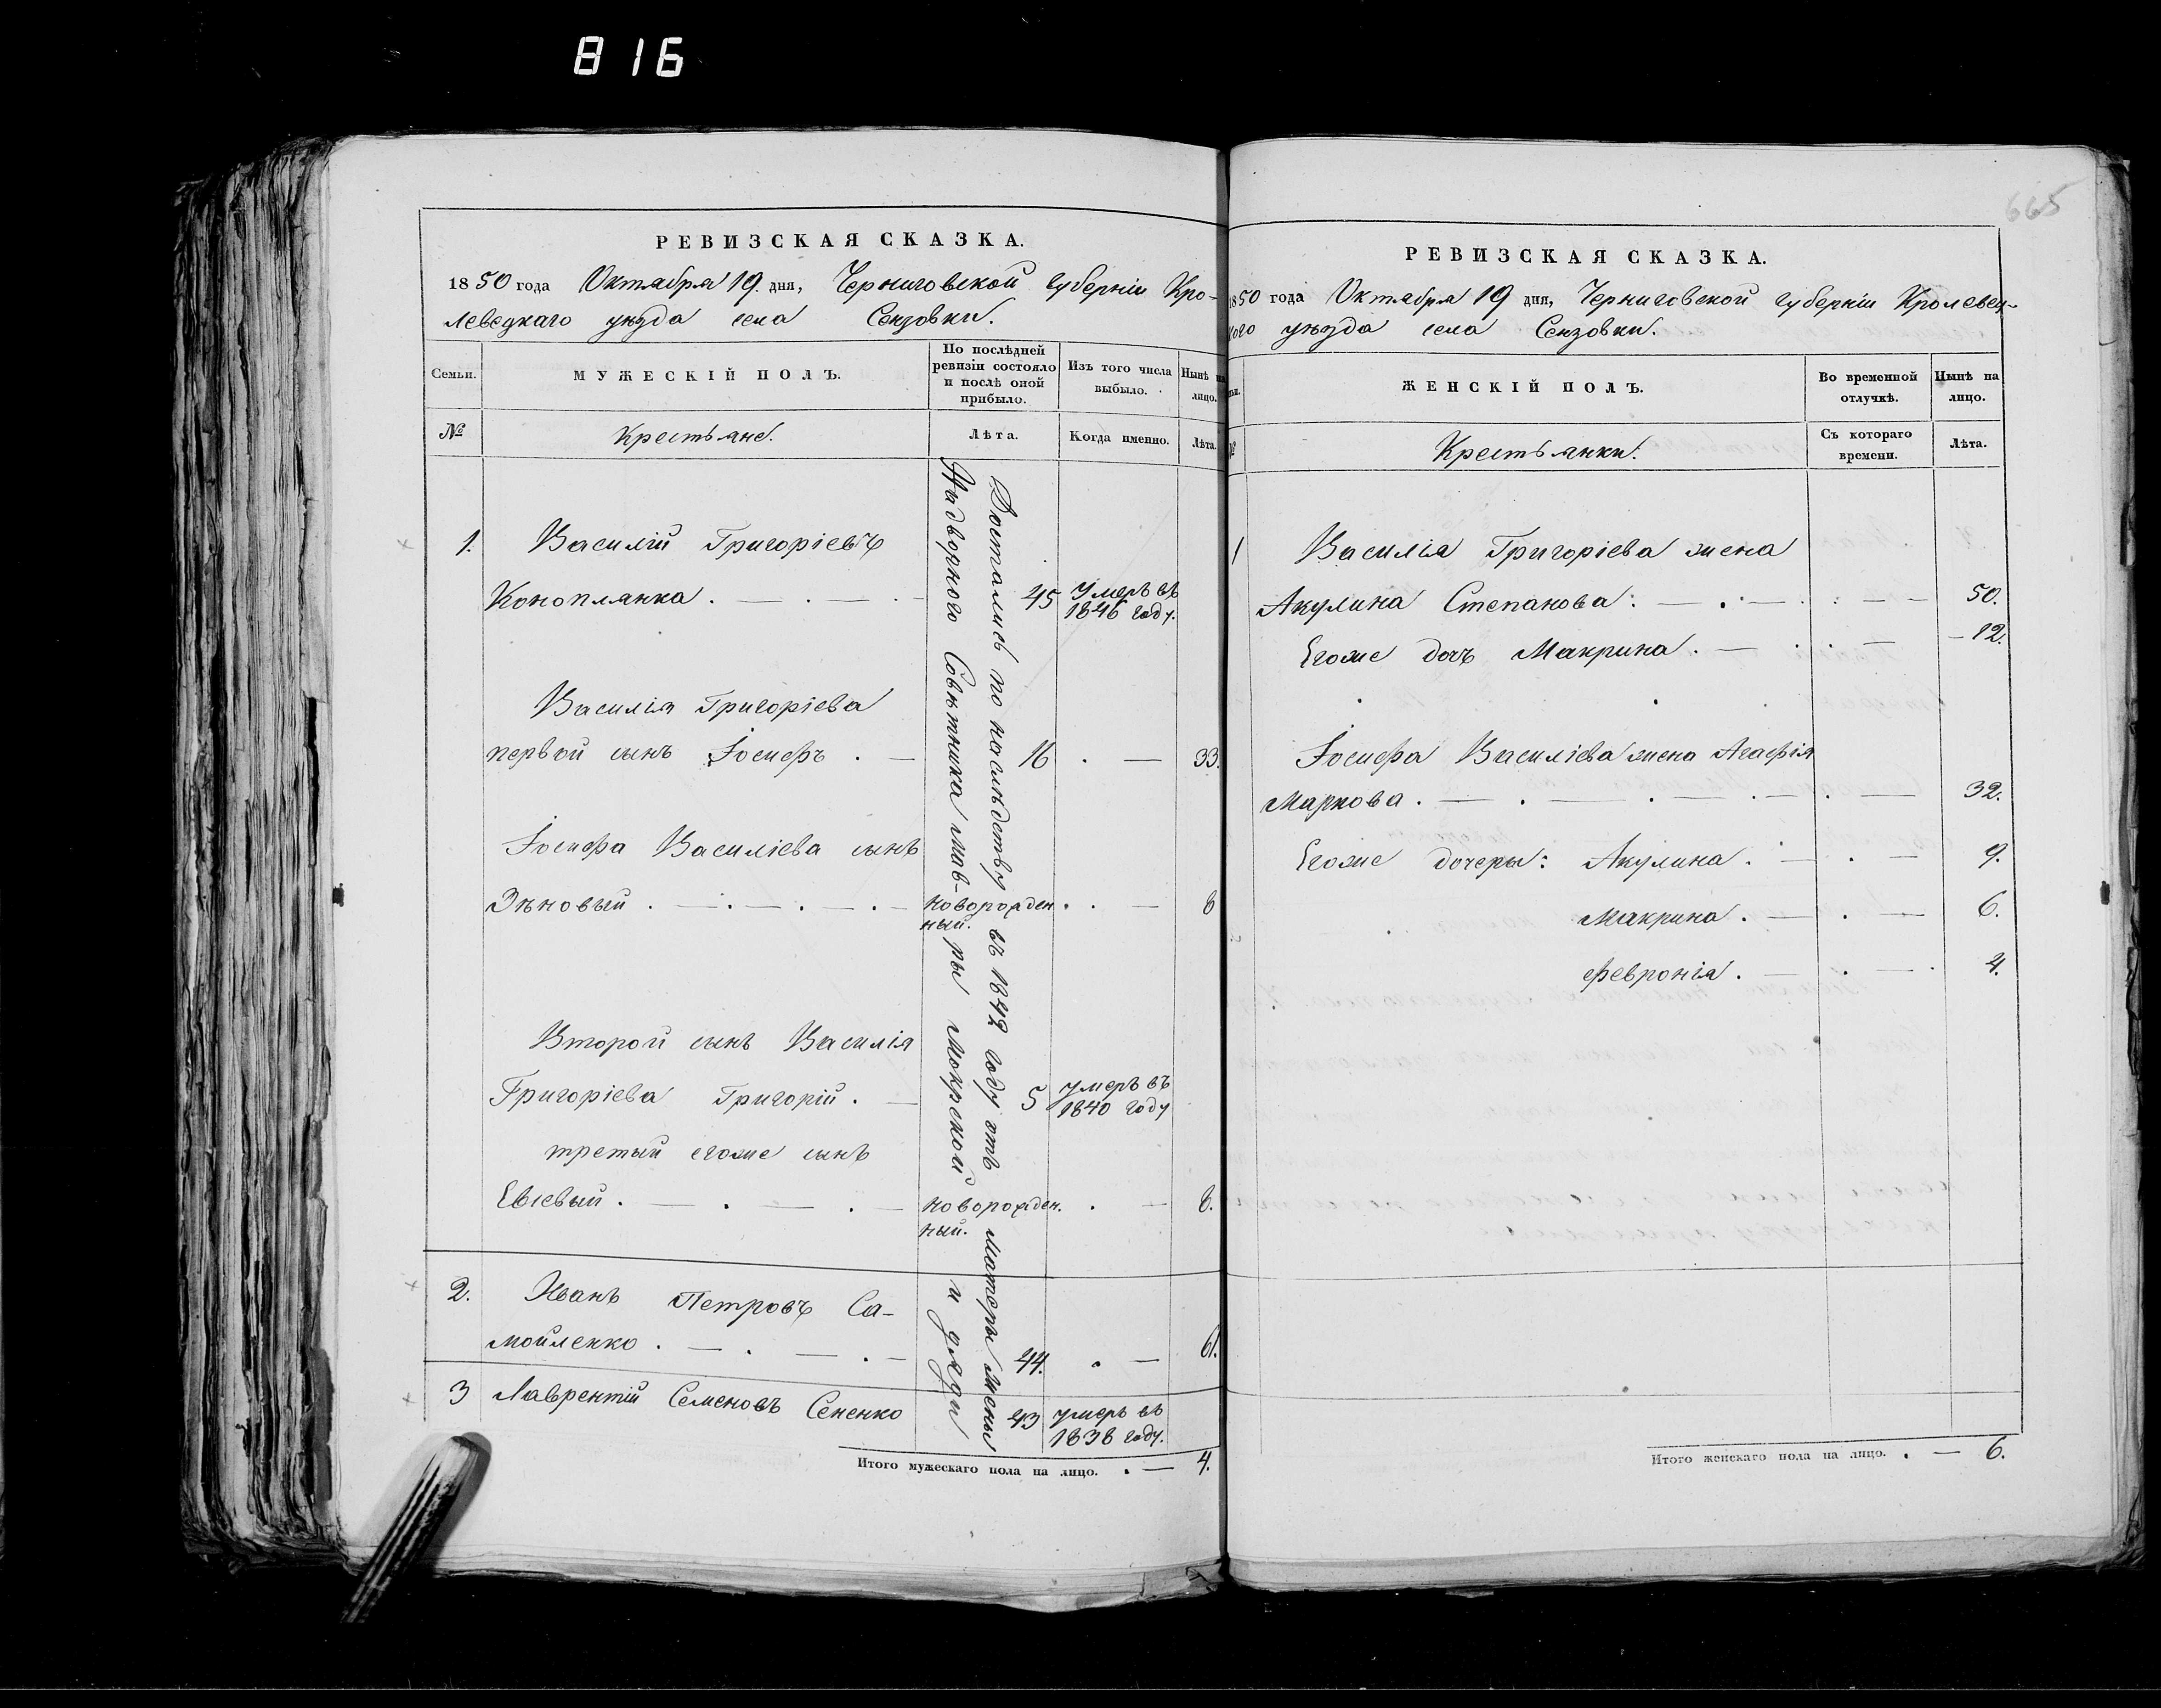 816
665
РЕВИЗСКАЯ СКАЗКА.
1850 года Октября 19 дня, Черниговской губерніи Кро-
левецкаго уѣзда села Сензовки.
Семьи.
МУЖЕСКІЙ ПОЛЪ.
По послѣдней
ревизіи состояло
и послѣ оной
прибыло.
Изъ того числа
выбыло.
Нынѣ на
лицо.
№
Крестьяне.
Лѣта.
Когда именно.
Лѣта.
1. Василій Григоріевъ
Коноплянка . — . — . 45 Умеръ въ
1846 году.
Василія Григоріева
первой сынъ Іосифъ . — 16 . — 33.
Іосифа Василіева сынъ
Зѣновый . — . — . — . — новорожден . . — 8
ный.
Второй сынъ Василія
Григоріева Григорій . — 5 умеръ въ
1840 году
третый егоже сынъ
Евіевый . — . — . — новорожден. . — 8.
ный.
2. Иванъ Петровъ Са-
мойленко . — . — . — 44. . — 61.
3 Лаврентій Семеновъ Сененко 43 умеръ въ
1838 году.
Достались по наслѣдству въ 1842 году отъ матеры жены
Надворного Совѣтника мав-
ры Мокрской и дяди
Итого мужескаго пола на лицо. . — 4.
РЕВИЗСКАЯ СКАЗКА.
1850 года Октября 19 дня, Черниговской губерніи Кролевец-
кого уѣзда села Сензовки.
ЖЕНСКІЙ ПОЛЪ.
Во временной
отлучкѣ.
Нынѣ на
лицо.
№
Крестьянки.
Съ котораго
времени.
Лѣта.
1 Василія Григоріева жена
Акулина Степанова: — . — . — — 50.
Егоже дочъ Макрина . — . . — — 12.
Іосифа Василіева жена Агафія
Маркова . — . — . — . — . — 32.
Егоже дочеры: Акулина . — . — 9.
Макрина . — . — 6.
Февронія . — . — . 4.
Итого женскаго пола на лицо. . — 6.